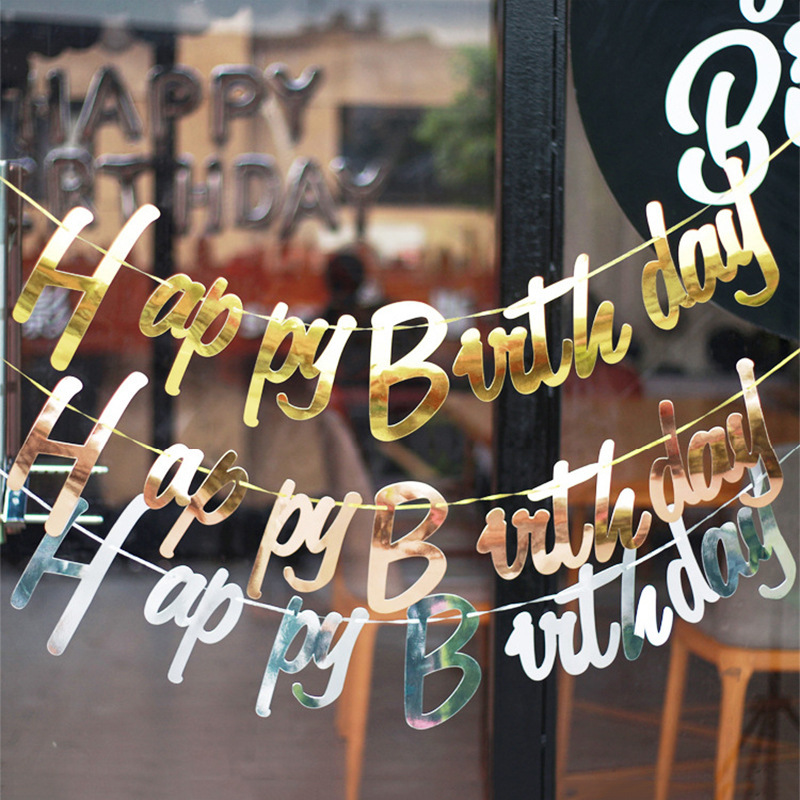 HAPPY
BIRTHDAY
B
Happy Birthday
Happy Birthday
Happy Birthday